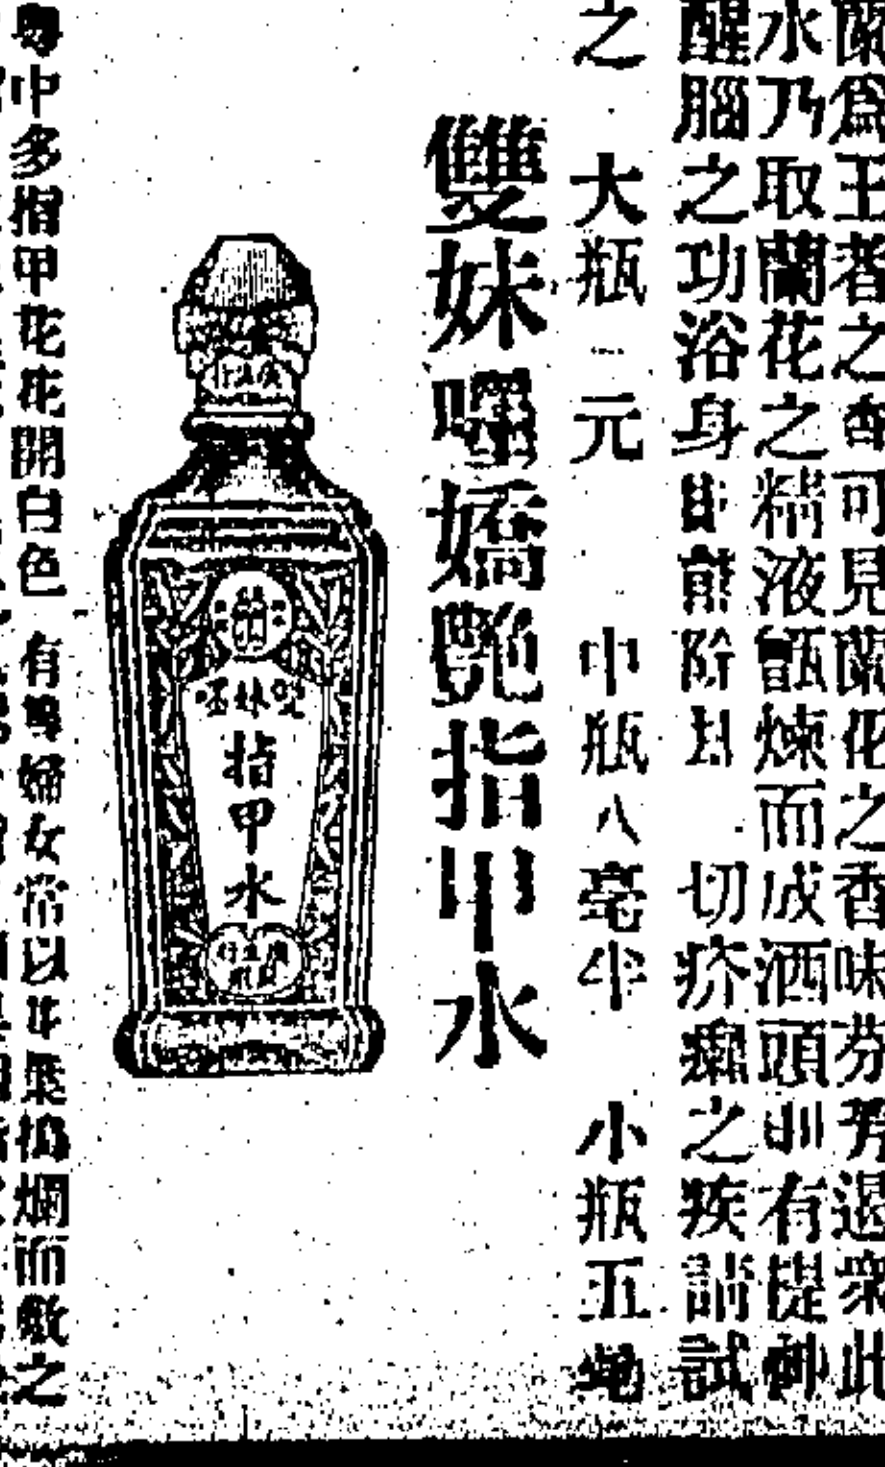 蘭爲王者之香可見蘭花之香味芬芳過衆此
水乃取蘭花之精液甑煉而成洒頭則有提神
醒腦之功浴身則可除 切疥癩之疾請試
之 大瓶 元 中瓶八毫半 小瓶五毫
雙妹嚜嬌艷指甲水
雙妹嚜
指甲水
廣生行
粤中多指甲花花開白色 有等婦女常以其葉搗爛而敷之